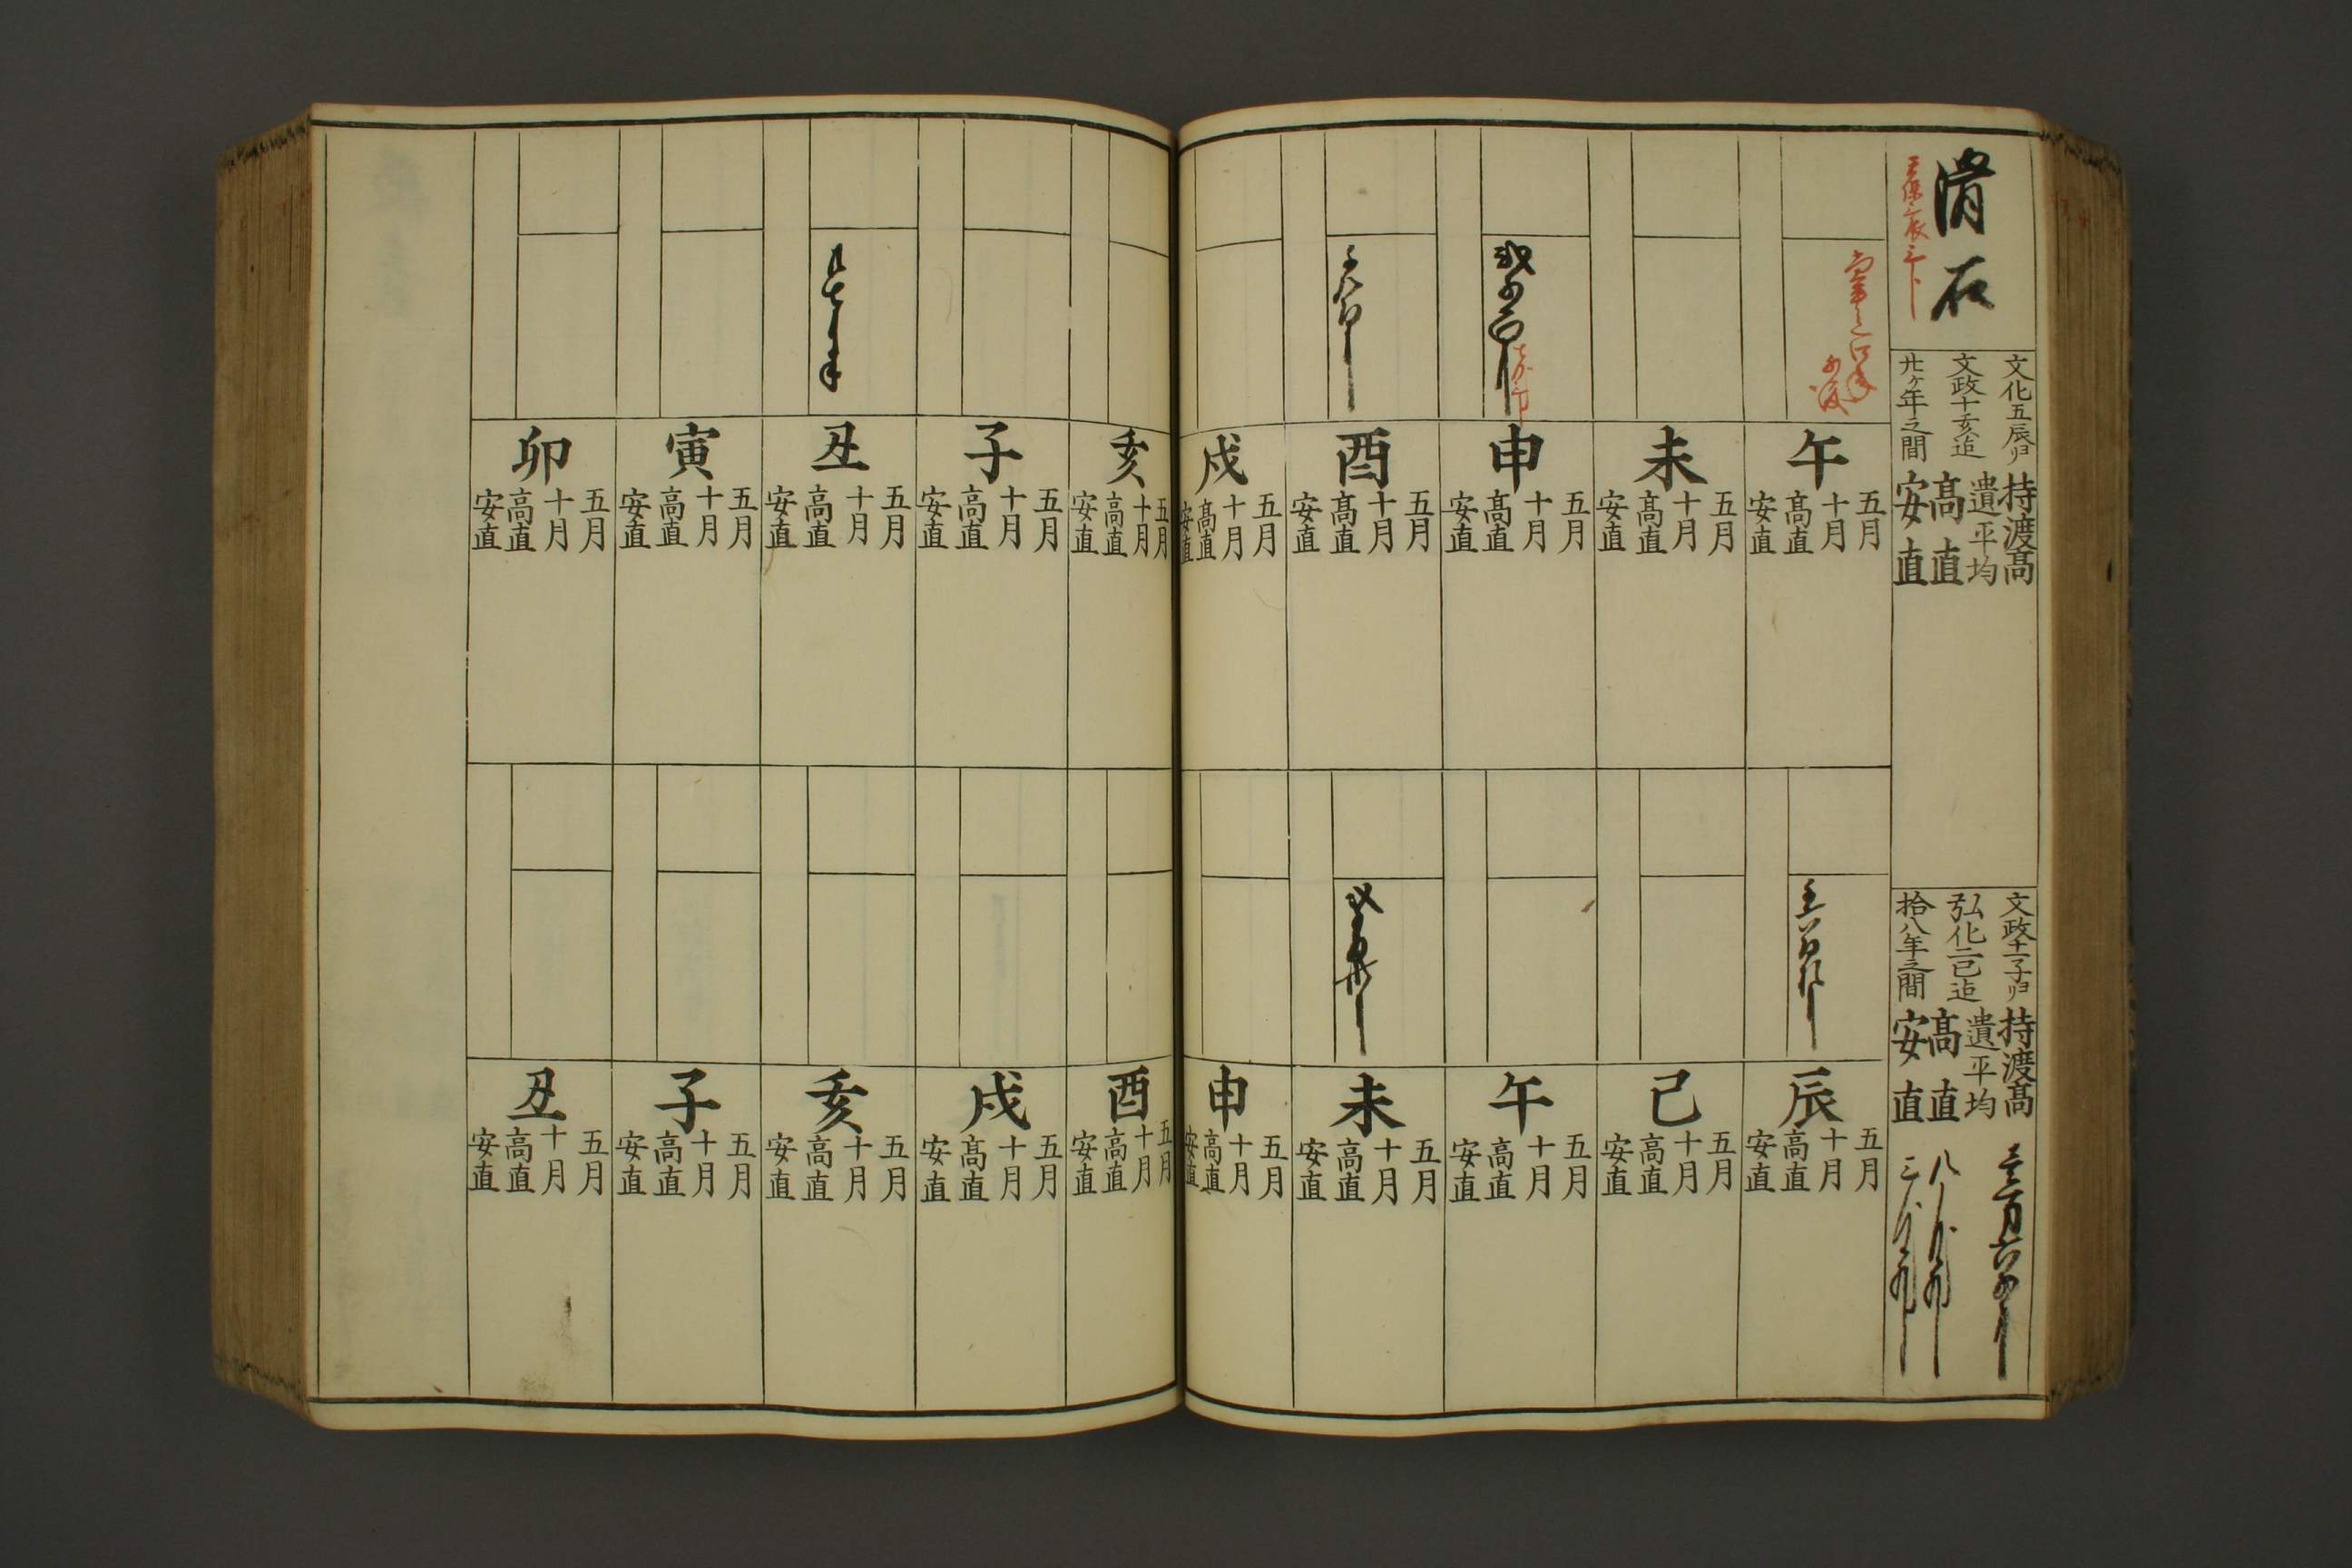 滑石
文化五辰ヨリ
文政十亥迠
廿ケ年之間
持渡髙
遣平均
髙直
安直
文政十一子ヨリ
弘化二巳迠
拾八年之間
持渡髙
遣平均
髙直
安直
午
五月
十月
髙直
安直
未
五月
十月
髙直
安直
申
五月
十月
髙直
安直
酉
五月
十月
髙直
安直
戌
五月
十月
髙直
安直
亥
五月
十月
髙直
安直
子
五月
十月
髙直
安直
丑
五月
十月
髙直
安直
寅
五月
十月
髙直
安直
卯
五月
十月
髙直
安直
辰
五月
十月
髙直
安直
巳
五月
十月
髙直
安直
午
五月
十月
髙直
安直
未
五月
十月
髙直
安直
申
五月
十月
髙直
安直
酉
五月
十月
髙直
安直
戌
五月
十月
髙直
安直
亥
五月
十月
髙直
安直
子
五月
十月
髙直
安直
丑
五月
十月
髙直
安直